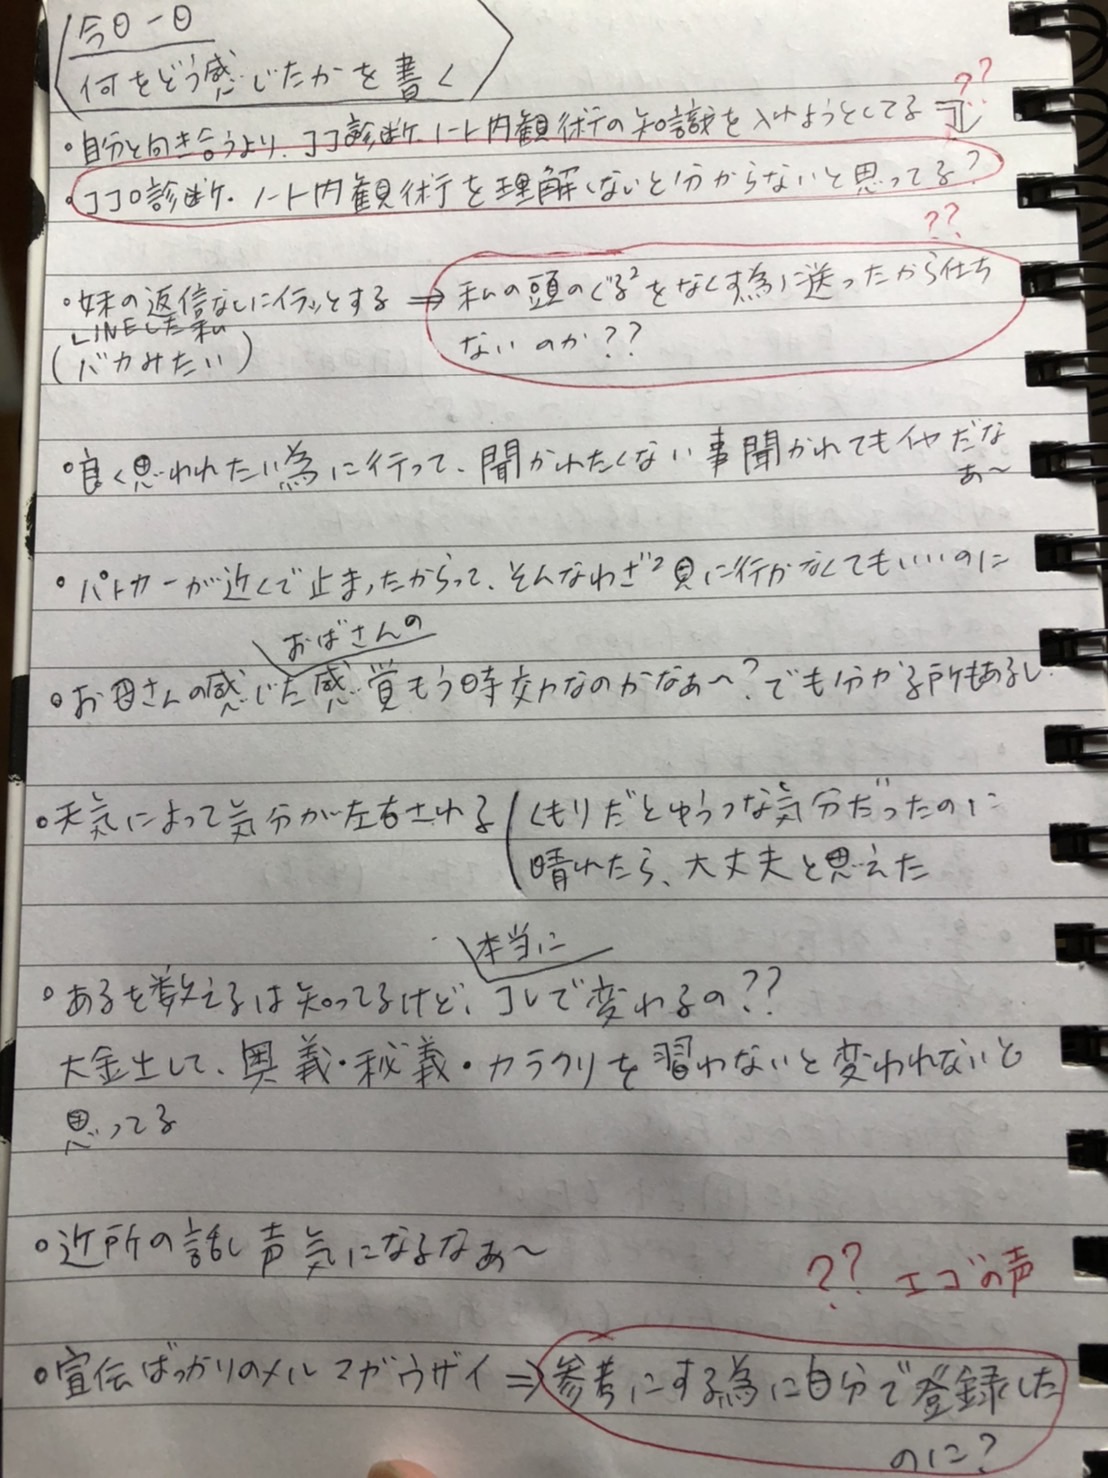 今日一日
何をどう感じたかを書く
??
・自分と向き合うより、ココロ診断、ノート内観術の知識を入れようとしてる⇒
・ココロ診断・ノート内観術を理解しないと分からないと思ってる?
??
・妹の返信なしにイラッとする ⇒ 私の頭のぐる²をなくす為に送ったから仕方
ないのか??
LINEした私
(バカみたい)
・良く思われたい為に行って、聞かれたくない事聞かれてもイヤだな
ぁ〜
・パトカーが近くで止まったからって、そんなわざ²見に行かなくてもいいのに
おばさんの
・お母さんの感じた感覚もう時効なのかなぁ〜?でも分かる所もあるし
・天気によって気分が左右される くもりだとゆううつな気分だったのに
晴れたら、大丈夫と思えた
本当に
・あるを数えるは知ってるけど、コレで変わるの??
大金出して、奥義・秘義・カラクリを習わないと変われないと
思ってる
・近所の話し声気になるなぁ〜
?? エゴの声
・宣伝ばっかりのメルマガウザイ ⇒ 参考にする為に自分で登録した
のに?